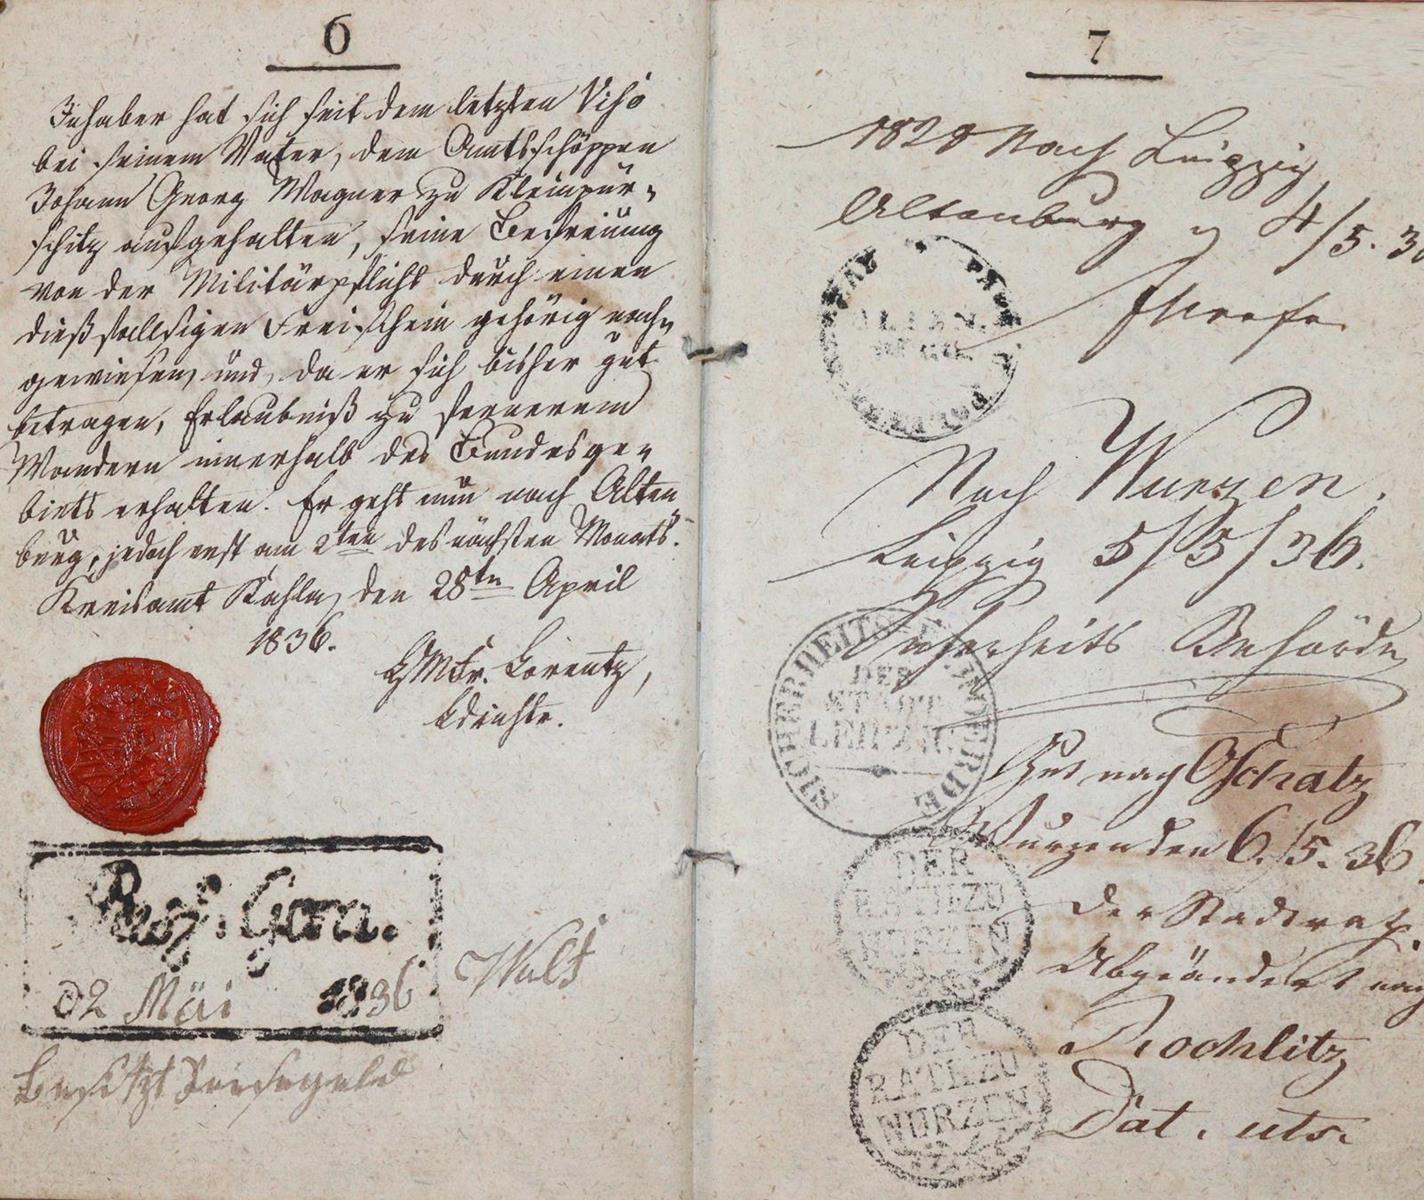 6
Inhaber hat sich seit dem letzten Visô
bei seinem Vater, dem Amtsschöppen
Johann Georg Wagner zu Kleinpür-
schitz aufgehalten, seine Befreiung
von der Militärpflicht durch einen
dießfallsigen Freischein gehörig nach-
gewiesen, und, da er sich bisher gut
betragen, Erlaubniß zu fernerem
Wandern innerhalb des Bundesge-
biets erhalten. Er geht nun nach Alten-
burg, jedoch erst am 2ten des nächsten Monats.
Kreisamt Kahla, den 28tn April
1836.
Lorentz,
Pass. Gera.
02 Mäi 1836
Besitzt Reisegeld
7
1828 Nach Leipzig
Altenburg 4/5. 36
ALTEN
BURG
Nach Wurzen.
Leipzig 5/5/36.
Sicherheits Behörde
SICHERHEITS-BEHOERDE
DER
STADT
LEIPZIG
Gut nach Oschatz
Wurzen den 6./5. 36.
Der Stadtrath.
DER
RATH ZU
WURZEN
Abgeändert nach
Rochlitz
Dat. uts.
DER
RATH ZU
WURZEN